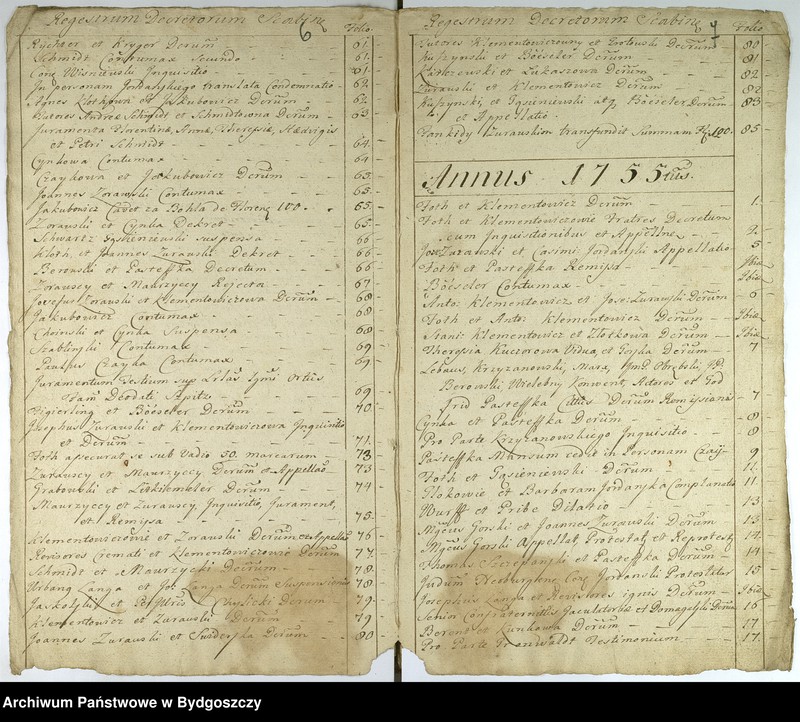 Regestrum Decretorum Scabin̄
6
Folio
Rychter et Kryger Decrum 61.
Schmidt Contumax Secundo 61.
Coñe Wisniewski Inquisitio 61.
In personam Jordaƞskiego translata Condemnatio 62.
Agnes Klotkowa et Jakubowicz Decrum 62.
Tutores Andreæ Schmidt et Schmidtowna Decrum 63
Juramenta Florentinæ, Annæ, Theresiæ, Hedvigis
et Petri Schmidt 64.
Cynkowa Contumax 64
Czaykowa et Jakubowicz Decrum 65.
Joannes Zorawski Contumax 65.
Jakubowicz Cadet za Bohla de Floreni 100. 65.
Zorawski et Cynka Dekret 65.
Schwartz Gąsieniewski suspensa 66
Kloth et Joannes Zurawski Dekret 66.
Berowski et Pasteffka Decretum 66
Zorawscy et Maurzyccy Rejecta 67
Josephus Zorawski et Klementowiczowa Decrum 68
Jakubowicz Contumax 68
Choinski et Cynka Suspensa 68
Szablinski Contumax 69
Paulus Czayka Contumax 69.
Juramentum Testium sup
Deodati Apitz 69
et Böëseler Decrum 70.
Josephus Zurawski et Klementowiczowa Inquisitio
et Decrum 71.
Foth assecurat se sub Vadio 50. marcarum 73
Zurawscy et Maurzyccy Decrum et Appellaõ 73
Grabowski et Decrum 74
Maurzyccy et Zurawscy Inquisitio, Jurament,
et Remissa 75.
Klementowiczowie et Zorawski Decrum et Appellaõ 76
Revisores Cremati et Klementowiczowie Decrum 77.
Schmidt et Maurzycki Decrum 78.
Urbang Langa et Jos. Langa Decrum Suspensionis 78
Jaskolski et Chysicki Decrum 79
Klementowicz et Zurawski Decrum 79
Joannes Zurawski et Decrum 80
Regestrum Decretorum Scabin̄
7
Folio
Tutores Klementowiczowny et Decrum 80
Kuszynski et Böëseler Decrum 81
Karczewski et Lukaszowa Decrum 82
Zurawski et Klementowicz Decrum 82
Kuszynski, et Gąsieniewski atq Böëseler Decrum 83
et Appellatio.
Zurawskim transfundit Summam Fl. 100. 85
Annus 1755tus.
Foth et Klementowicz Decrum 1.
Foth et Klementowiczowie Fratres Decretum
cum Inquisitionibus et Appellne 2.
Jos. Zurawski et Casimi Jordaƞski Appellatio 5
Foth et Pasteffka Remissa Ibid
Böëseler Contumax Ibid
Anto: Klementowicz et Jos: Zurawski Decrum 6
Foth et Ant: Klementowicz Decrum Ibid
Stani: Klementowicz et Zlotkowa Decrum Ibid
Theresia Kuczorowa Vidua, et Feyka Decrum 7
Lebaus, Krzyzanowski, Marx, Jmć Obrębski, XX.
Berowski, Wielebny Konwent, Actores et God
frid Pasteffka Cittus Decrum Remissionis 7
Cynka et Pasteffka Decrum 8
Pro Parte Krzyzanowskiego Inquisitio 8
Pasteffka Mansum cedit in Personam Czay 9
Foth et Gąsieniewski Decrum 11.
Flokowie et Barbaram Jordaƞska Complanatio 11
Wurfft et Pribe Dilatio 13
Gorski et Joannes Zurawski Decrum 13
Gorski Appellat, Protestat, et Reprotesta 14.
Thomas Szczepanski et Pasteffka Decrum 14
Judum Neoburgense Coñe Jordanski Protestatur 15
Josephus Langa et Revisores ignis Decrum Ibid
Senior Confraternitis Jaculatorbis et Domagalski Decrum 16
Berent et Kunkowa Decrum 17
Pro Parte Testimonium 17.
Archiwum Państwowe w Bydgoszczy